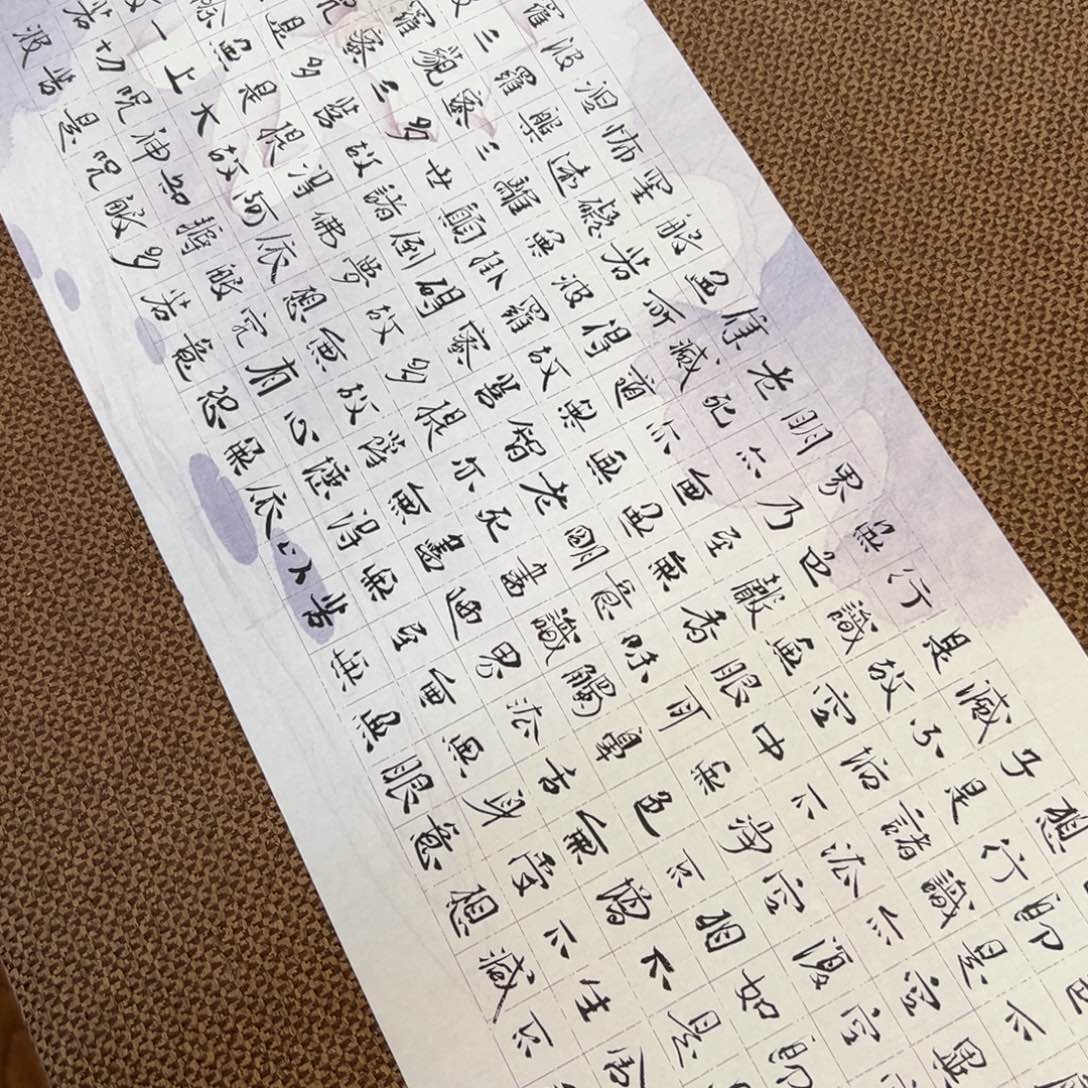 不異
即是空空即
想行識亦復如是舍
子是諸法空相不生不
滅不垢不淨不增不減
是故空中無色無受想
行識無眼耳鼻舌身意
無色聲香味觸法無眼
界乃至無意識界無無
明亦無無明盡乃至無
老死亦無老死盡無苦
集滅道無智亦無得以
無所得故菩提薩埵依
般若波羅蜜多故心無
罣礙無罣礙故無有恐
怖遠離顛倒夢想究竟
涅槃三世諸佛依般若
波羅蜜多故得阿耨多
羅三藐三菩提故知般
波羅蜜多是大神咒
咒是無上咒是
除一切苦
若波